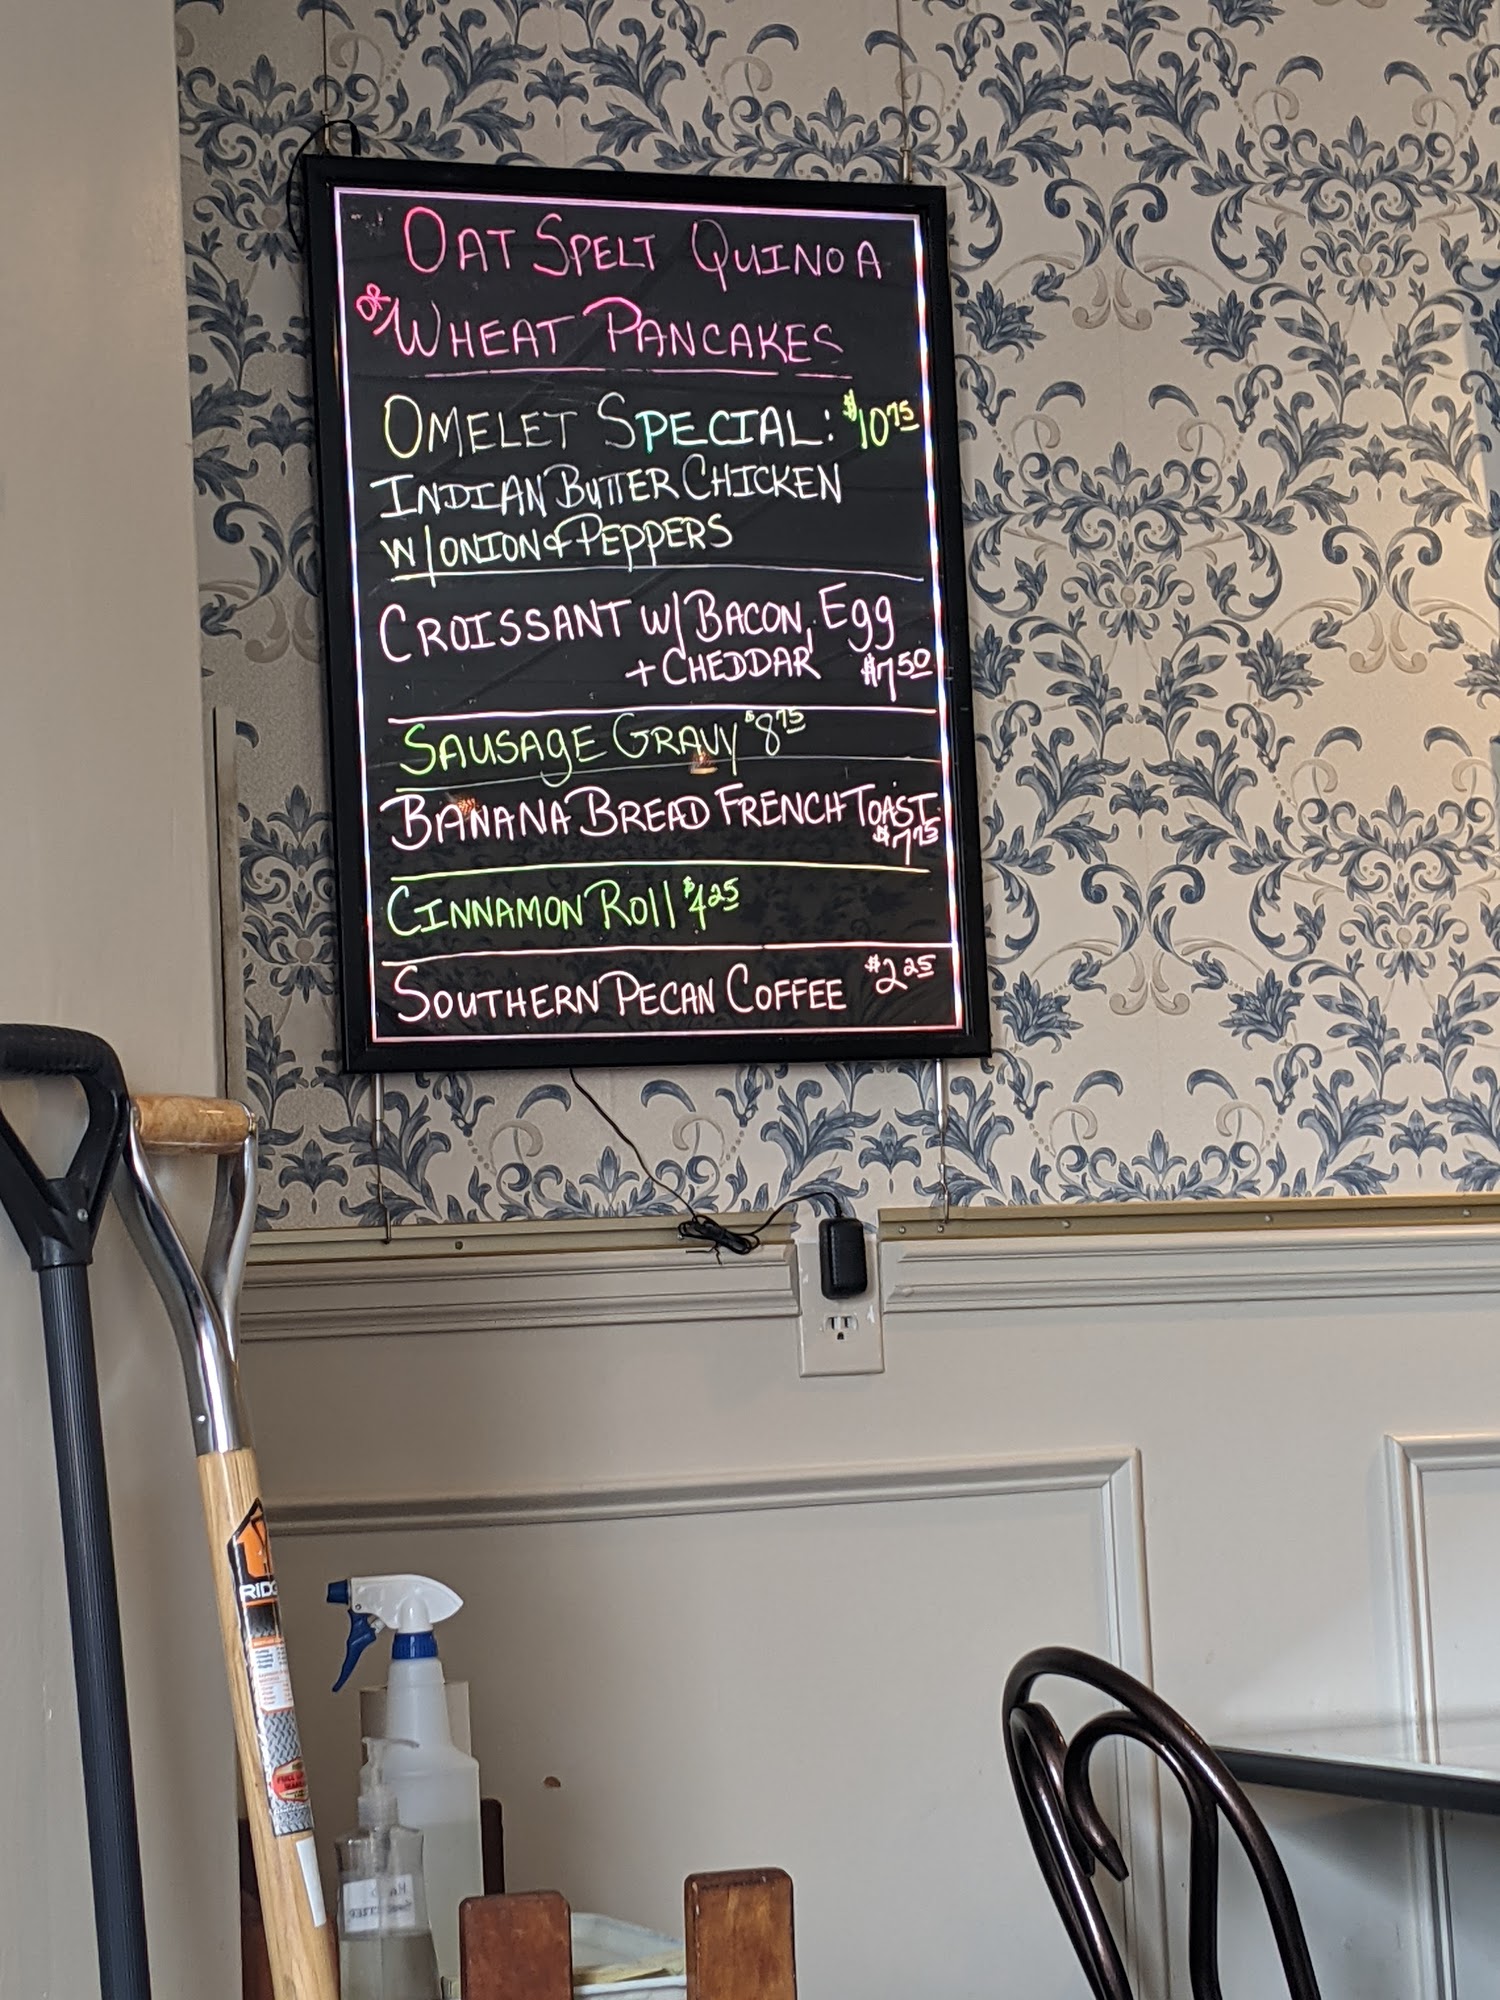 OAT SPELT QUINOA
OR WHEAT PANCAKES
OMELET SPECIAL: $10 75
INDIAN BUTTER CHICKEN
W/ ONION & PEPPERS
CROISSANT W/ BACON, Egg
+ CHEDDAR $7 50
SAUSAGE GRAVY $8 75
BANANA BREAD FRENCH TOAST
$7 75
CINNAMON ROLL $4 25
SOUTHERN PECAN COFFEE $2 25
RIDG